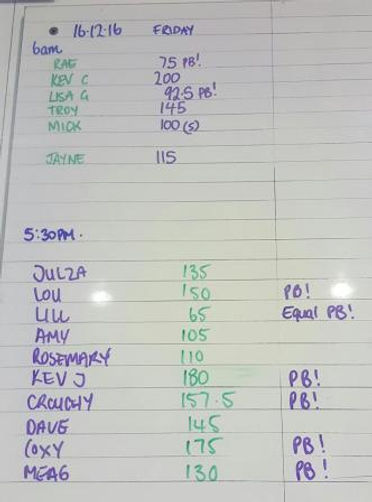 16.12.16 FRIDAY
6am
RAE 75 PB!
KEV C 200
LISA G 92.5 PB!
TROY 145
MICK 100 (s)
JAYNE 115
5:30PM.
JULZA 135
LOU 150 PB!
LILL 65 Equal PB!
AMY 105
ROSEMARY 110
KEV J 180 PB!
CROUCHY 157.5 PB!
DAVE 145
COXY 175 PB!
MEAG 130 PB!